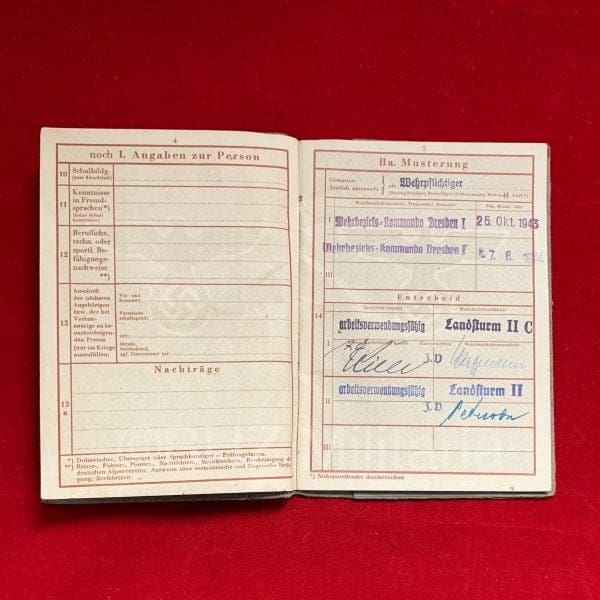 4
noch I. Angaben zur Person
10 Schulbildg.
(nur Abschluß)
11 Kenntnisse
in Fremd-
sprachen*)
12 Berufliche,
techn. oder
sportl. Be-
fähigungs-
nachweise
**)
13 Anschrift
des nächsten
Angehörigen
bzw. der bei
Verlust-
anzeige zu be-
nachrichtigen-
den Person
(nur im Kriege
auszufüllen)
Vor- und
Zuname:
Verwandt-
schaftsgrad:
Ort:
Straße,
Gebäudeteil,
ggf. Untermieter bei:
Nachträge
13
a
*) Dolmetscher, Übersetzer oder Sprachkundiger - Prüfungsdatum.
**) Reiter-, Führer-, Pionier-, Nachrichten-, Sanitätsschein, Bescheinigung d
deutschen Alpenvereins, Ausweise über seemännische und fliegerische Betäti
gung; Seefahrzeit.
5
IIa. Musterung
Gemustert
ärztlich untersucht } als Wehrpflichtiger
I Wehrbezirks-Kommando Dresden I 25. Okt. 1943
Wehrbezirks-Kommando Dresden I -7. 6. 1944
III
Entscheid
14
arbeitsverwendungsfähig Landsturm II C
J.V
arbeitsverwendungsfähig Landsturm II
II J.V.
III
*) Nichtzutreffendes durchstreichen
Militaria